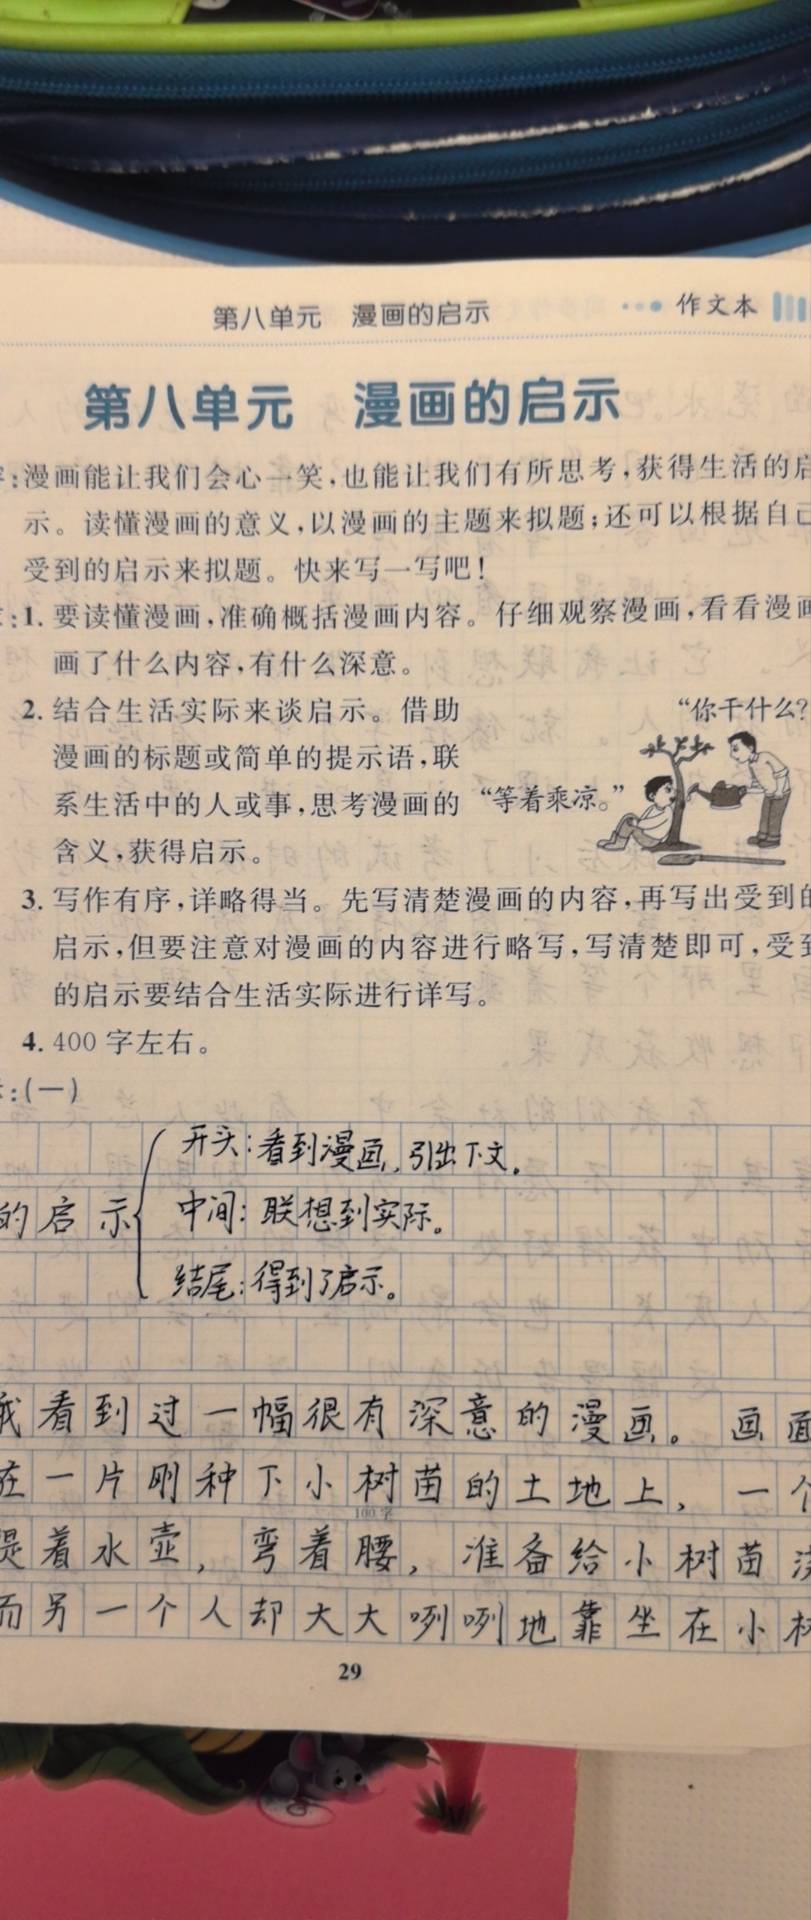 第八单元 漫画的启示
作文本
第八单元 漫画的启示
:漫画能让我们会心一笑,也能让我们有所思考,获得生活的启
示。读懂漫画的意义,以漫画的主题来拟题;还可以根据自己
受到的启示来拟题。快来写一写吧!
:1. 要读懂漫画,准确概括漫画内容。仔细观察漫画,看看漫画
画了什么内容,有什么深意。
2. 结合生活实际来谈启示。借助
漫画的标题或简单的提示语,联
系生活中的人或事,思考漫画的
含义,获得启示。
“你干什么?
“等着乘凉。”
3. 写作有序,详略得当。先写清楚漫画的内容,再写出受到的
启示,但要注意对漫画的内容进行略写,写清楚即可,受到
的启示要结合生活实际进行详写。
4. 400 字左右。
:(一)
开头:看到漫画,引出下文。
的启示
中间:联想到实际。
结尾:得到了启示。
我看到过一幅很有深意的漫画。画面
在一片刚种下小树苗的土地上,一个
100字
提着水壶,弯着腰,准备给小树苗浇
而另一个人却大大咧咧地靠坐在小树
29